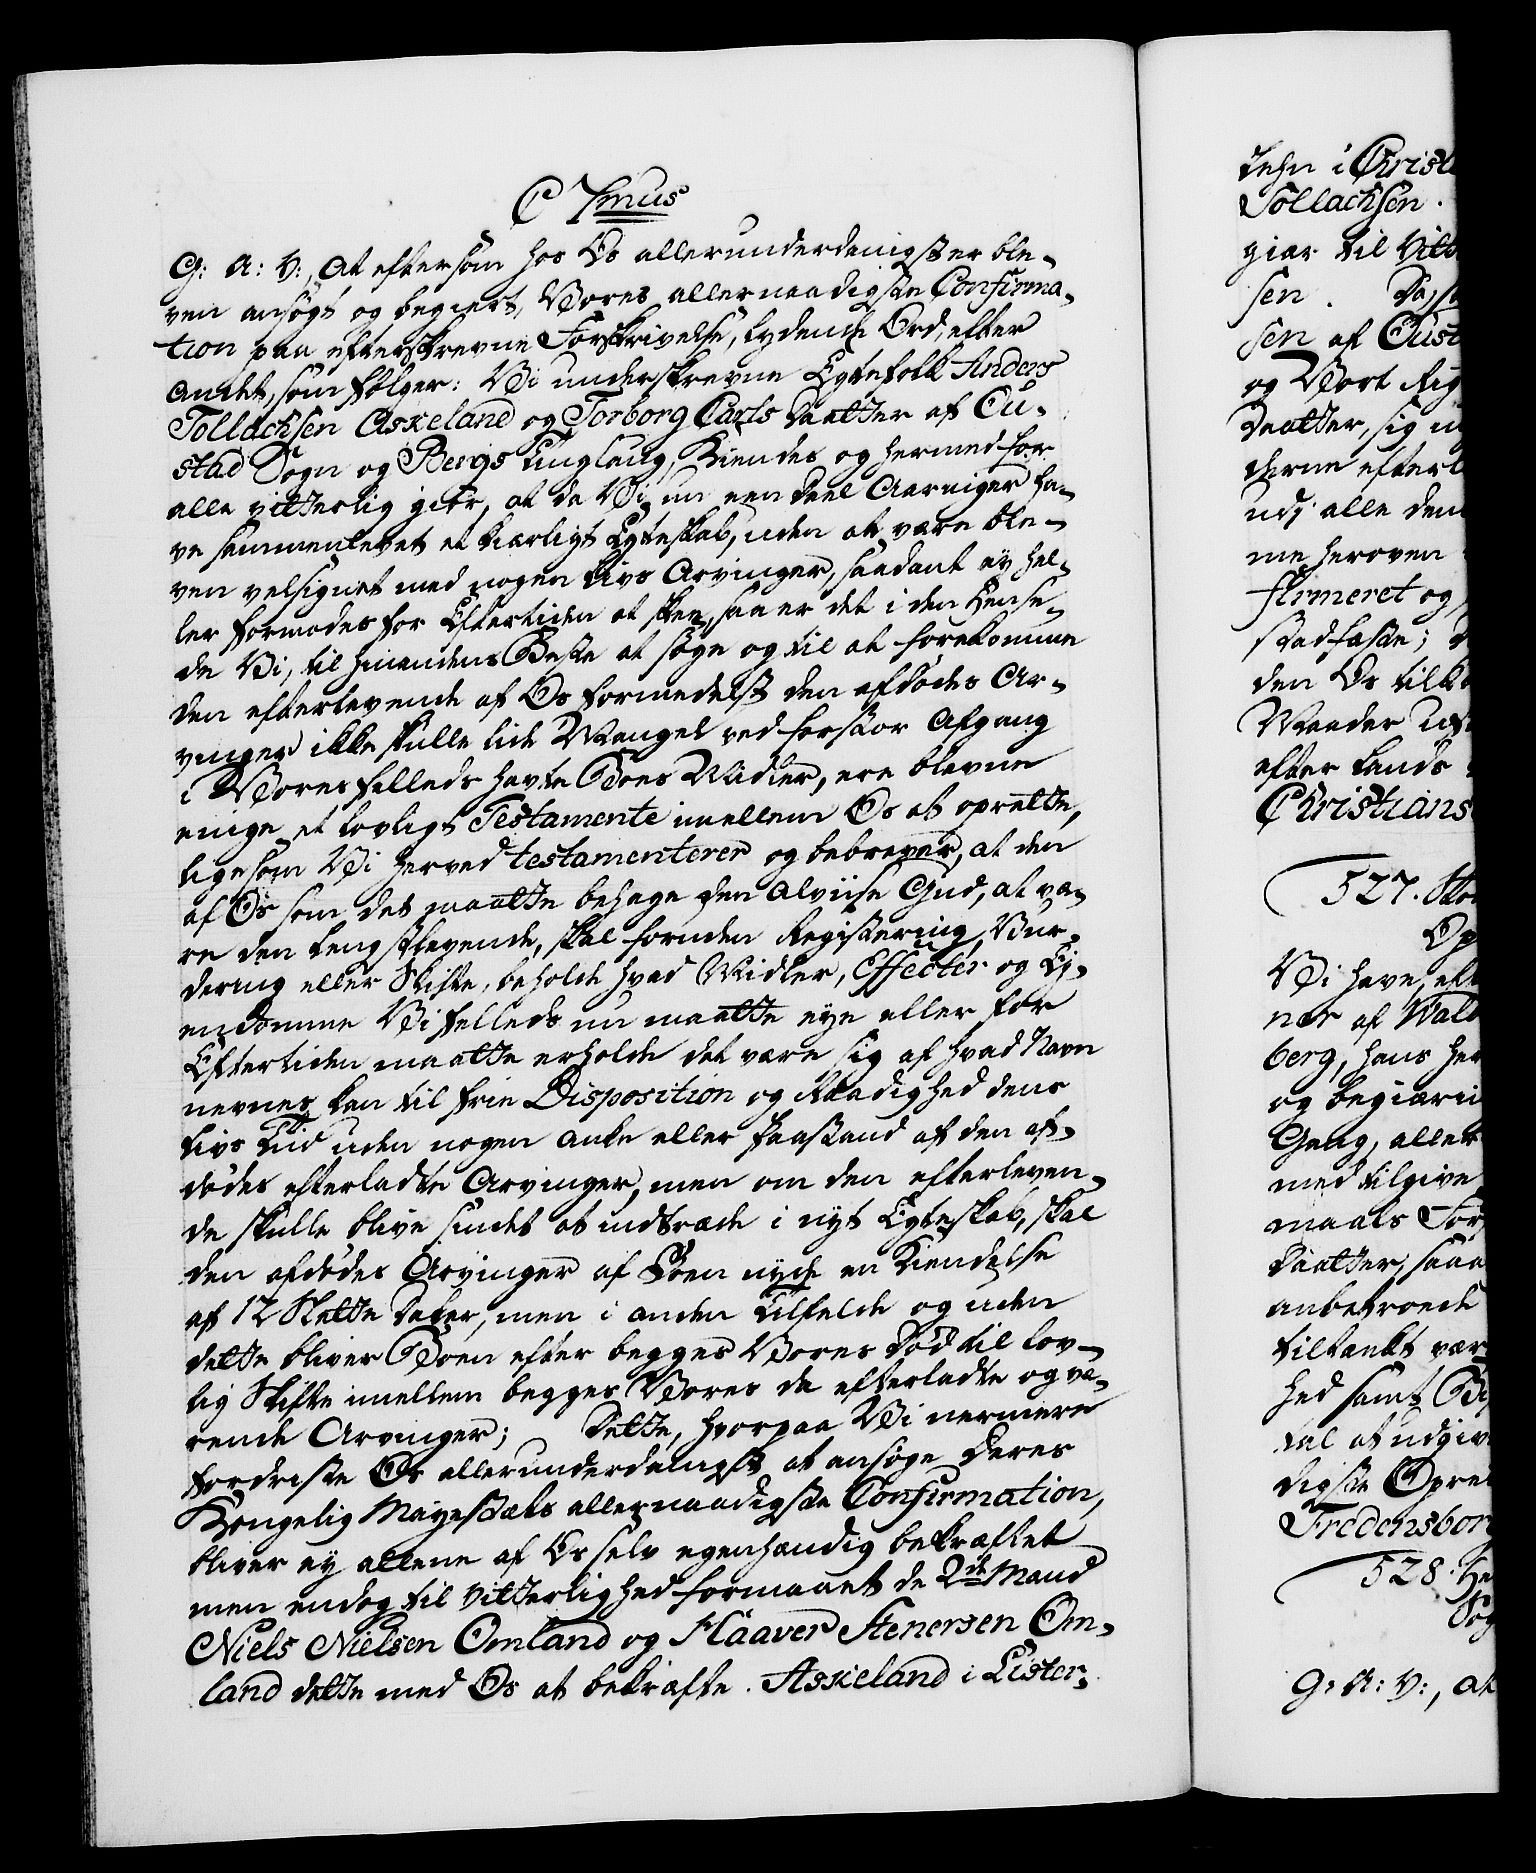 C 7mus
G: A: V:, At eftersom hos Os allerunderdanigst er ble-
ven ansøgt og begiert, Vores allernaadigste Confirma-
tion paa efterskrevne Forskrivelse, lydende Ord, efter
andet, som følger: Vi underskrevne Egtefolk Anders
Tollachsen Askeland og Torborg Carls Daatter af Cu-
stad Sogn og Bergs Tinglaug, Kiendes og hermed for
alle vitterlig giør, at da Vi nu een deel Aaringer ha-
ve sammenlevet et kiærligt Egteskab, uden at være ble-
ven velsignet med nogen Livs Arvinger, saadant ey hel-
ler formodes for Eftertiden at skee, saa er det i den Hense-
de Vi, til hinandens Beste at søge og til at forekomme
den efterlevende af Os formedelst den afdødes Ar-
vinger ikke skulle lide Mangel ved for stor Afgang
i Vores fælleds havte Boes Midler, ere blevne
enige et lovligt Testamente imellem Os at oprette,
ligesom Vi herved testamenterer og bebrever, at den
af Os som det maatte behage den alviise Gud, at væ-
re den lengstlevende, skal foruden Registering, Vur-
dering eller Skifte, beholde hvad Midler, Effecter og Ej-
endomme Vi fælleds nu maatte eye eller for
Eftertiden maatte erholde det være sig af hvad Navn
nevnes kan til frie Disposition og Raadighed dens
Livs Tid uden nogen Anke eller Paastand af den af-
dødes efterladte Arvinger, men om den efterleven-
de skulle blive sindet at indtræde i nyt Egteskab, skal
den afdødes Arvinger af Boen nyde en Kiendelse
af 12 Slette Daler, men i anden Tilfelde og uden
dette bliver Boen efter begges Vores Død til lov-
lig Skifte imellem begges Vores da efterladte og væ-
rende Arvinger; Dette, hvorpaa Vi nermere
fordriste Os allerunderdanigst at ansøge Deres
Kongelig Mayestæts allernaadigste Confirmation,
bliver ey allene af Os selv egenhændig bekræftet
men endog til Vitterlighed formaaet de 2de Mænd
Niels Nielsen Omland og Haaver Stenersen Om-
land dette med Os at bekræfte. Askeland i Lister-
lehn i Christ
Tollachsen.
giør til Vitt
sen. Da,
sen af Cust
og Vort Rig
Daatter, sig
derne efterl
udj alle den
me heroven
firmeret og
stadfæste;
den Os tilk
Maader
efter Lands
Christians
527.
Op
Vi have, eft
ner af Wald
berg, hans he
og begiærin
Gang, aller
med tilgive
maals For
Daatter, saa
anbetroede
tiltænkt vær
hed samt
tal at udgiv
digste Oprei
Fredensborg
528.
Sog
G: A: V:, at